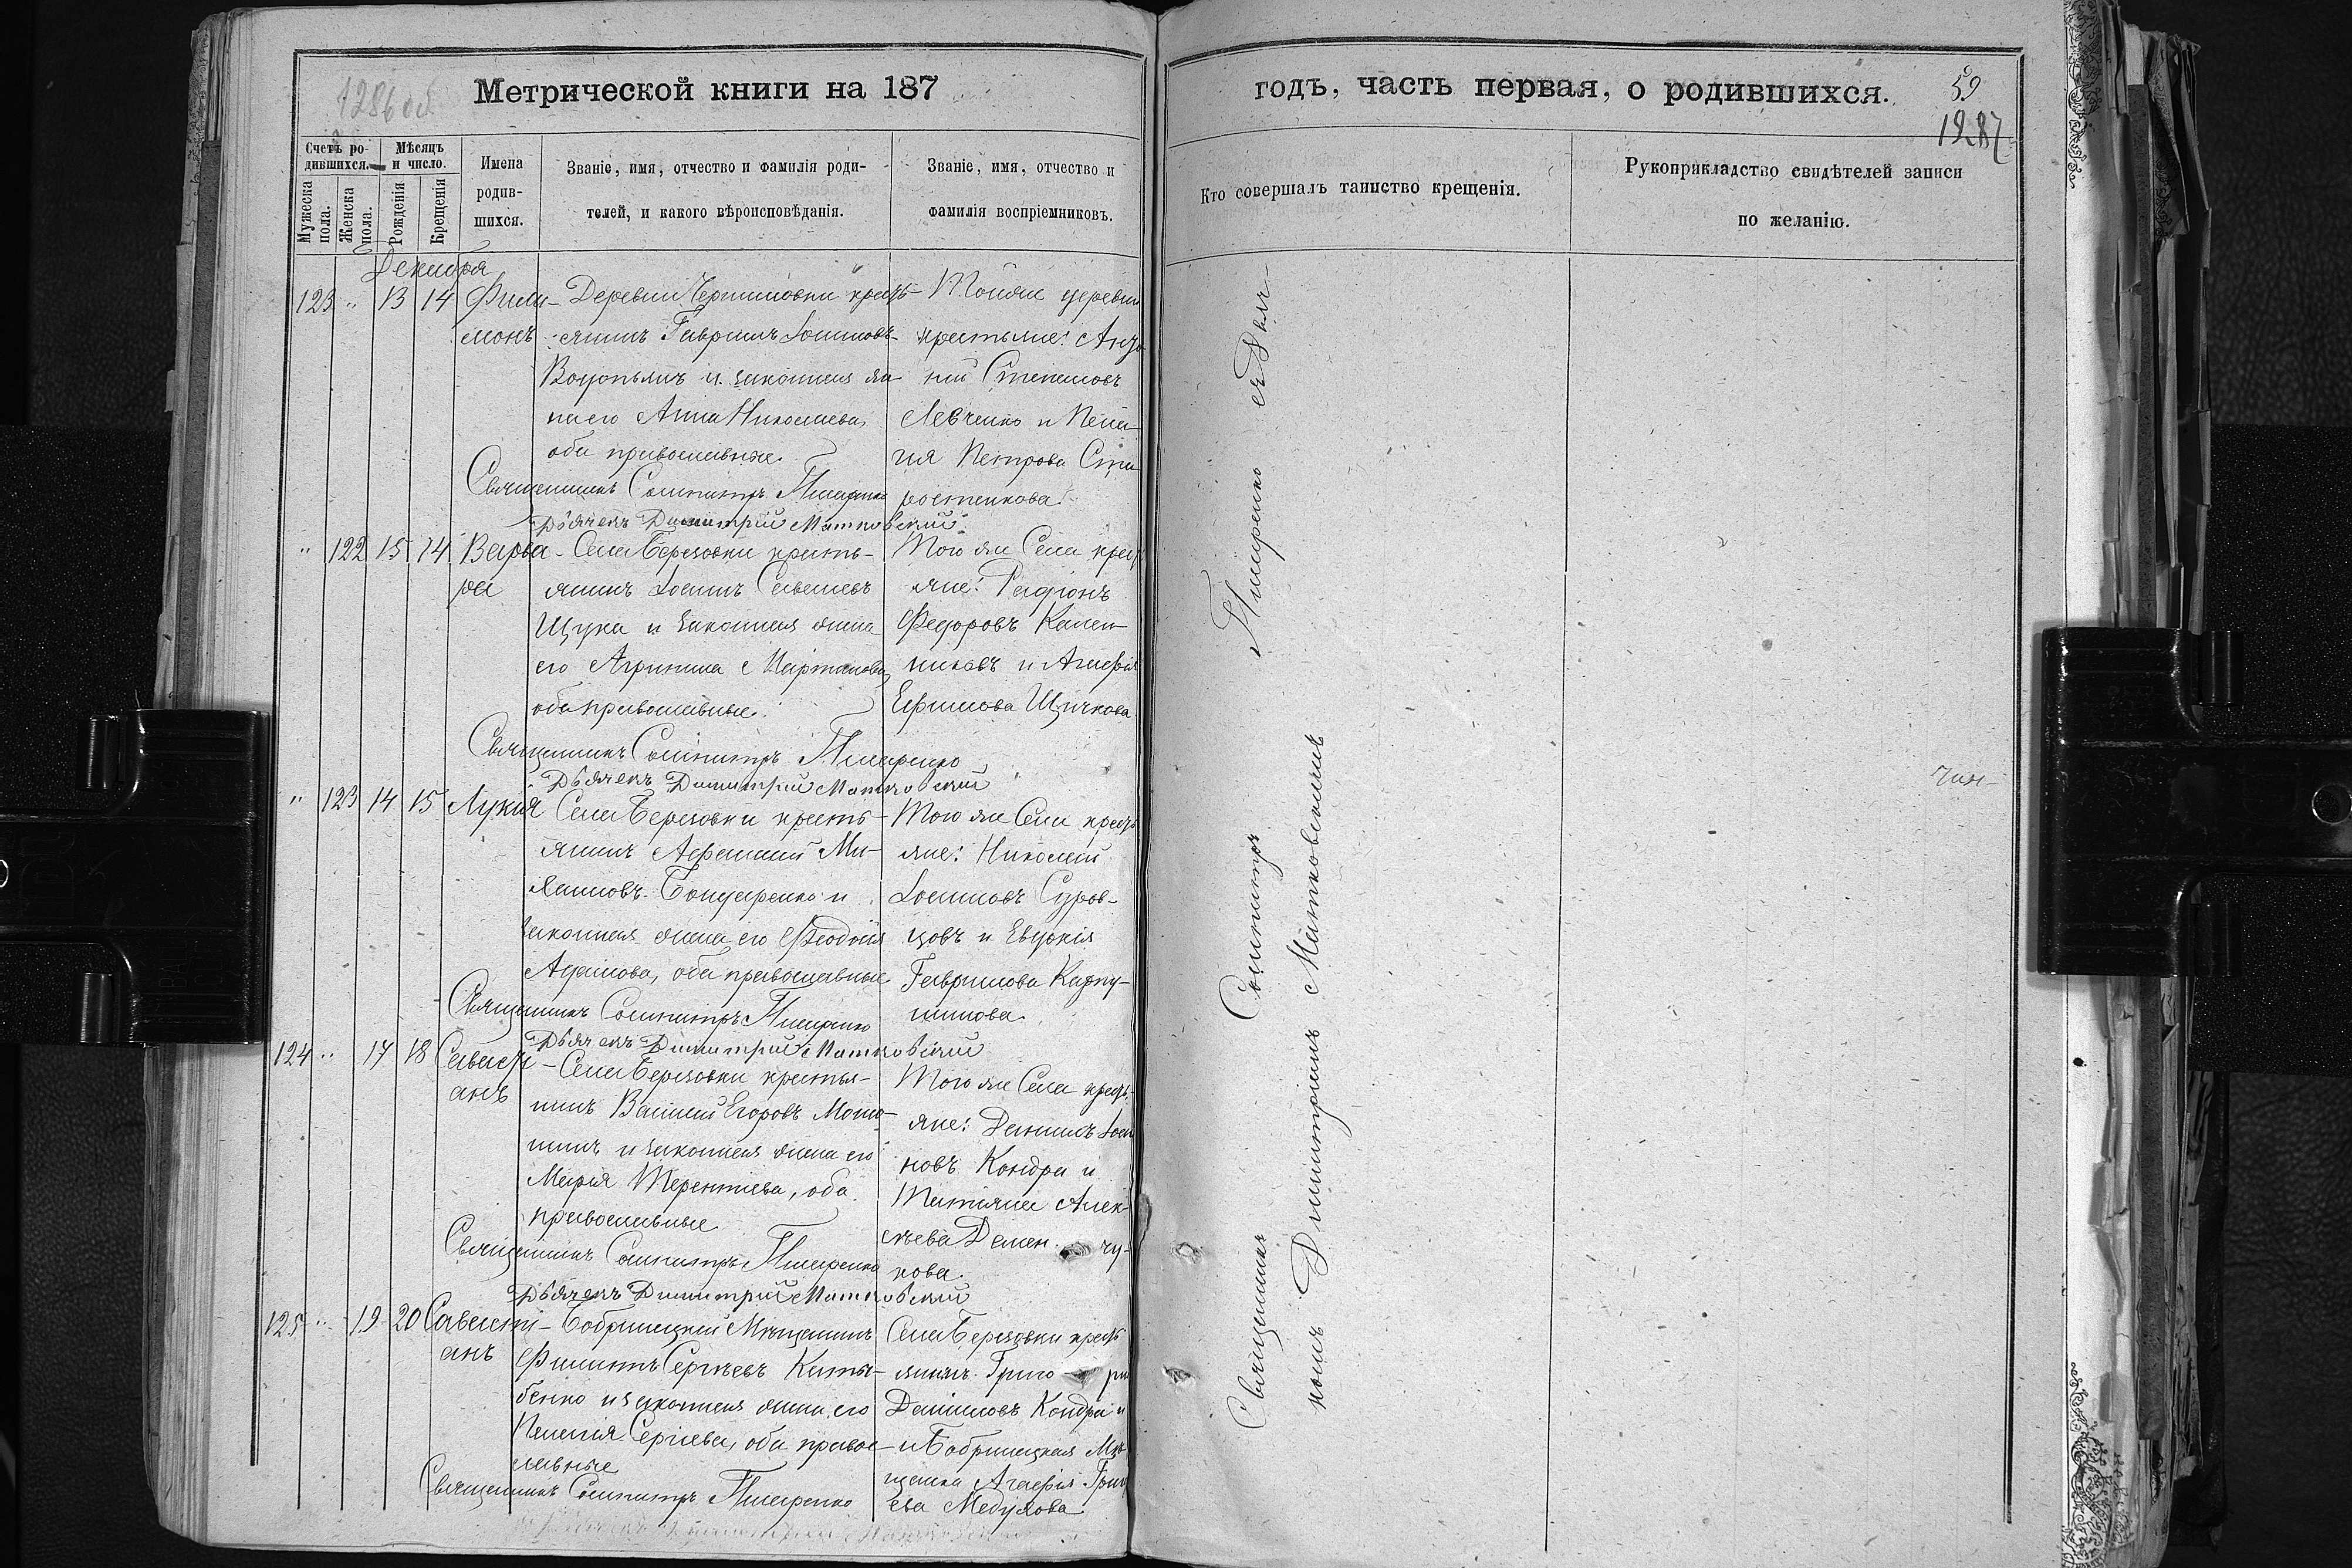 1286 об
Метрической книги на 187
годъ, часть первая, о родившихся.
59
1287
Счетъ ро-
дившихся.
Мѣсяцъ
и число.
Мужеска
пола.
Женска
пола.
Рожденія
Крещенія
Имена
родив-
шихся.
Званіе, имя, отчество и фамилія роди-
телей, и какого вѣроисповѣданія.
Званіе, имя, отчество и
фамилія воспріемниковъ.
Кто совершалъ таинство крещенія.
Рукоприкладство свидѣтелей записи
по желанію.
Декабря
123 " 13 14 Фили-
монъ
Деревни кресть-
янинъ Гавриилъ Іоанновъ
и законная же
на его Анна Николаева,
оба православные.
Священникъ Сосипатръ Писаренко
Дьячекъ Димитрій Матковскій
Тойже деревни
крестьяне: Анто
ній Степановъ
Левченко и Пела
гія Петрова Ста
ростенкова
" 122 13 14 Варва
ра
Села Березовки кресть-
янинъ Іоаннъ Савельевъ
Щука и законная жена
его Агрипина Мартинова,
оба православные.
Священникъ Сосипатръ Писаренко
Дьячекъ Димитрій Матковскій
Того же Села крест
яне: Родіонъ
Федоровъ Кален-
никовъ и Агафія
Ефимова Щучкова
" 123 14 15 Лукія
Села Березовки кресть-
янинъ Афанасій Ми-
Бондаренко и
законная жена его Феодосія
Адамова, оба православные
Священникъ Сосипатръ Писаренко
Дьячекъ Димитрій Матковскій
Того же Села кресть
яне: Николай
Іоанновъ Суров-
цовъ и Евдокія
Гаврилова Карпу-
шинова
124 " 17 18 Севасті
анъ
Села Березовки крестья-
нинъ Василій Егоровъ
и законная жена его
Марія Терентіева, оба
православные
Священникъ Сосипатръ Писаренко
Дьячекъ Димитрій Матковскій
Того же Села кресть
яне: Даніилъ Іоан
новъ Кондра и
Татіяна Алек-
сѣева Демен чу-
кова.
125 " 19 20 Савасті
анъ
Бобринецкій Мѣщанинъ
Филиппъ Сергѣевъ
бенко и законная жена его
Пелагія Сергіева, оба право
славные
Священникъ Сосипатръ Писаренко
Села Березовки кресть
янинъ Григо рій
Даніиловъ Кондра и
и Бобринецкая Мѣ
щанка Агафія Григ
ева Медузова
Священникъ Сосипатръ Писаренко съ Дьяч-
комъ Димитріемъ Матковскимъ